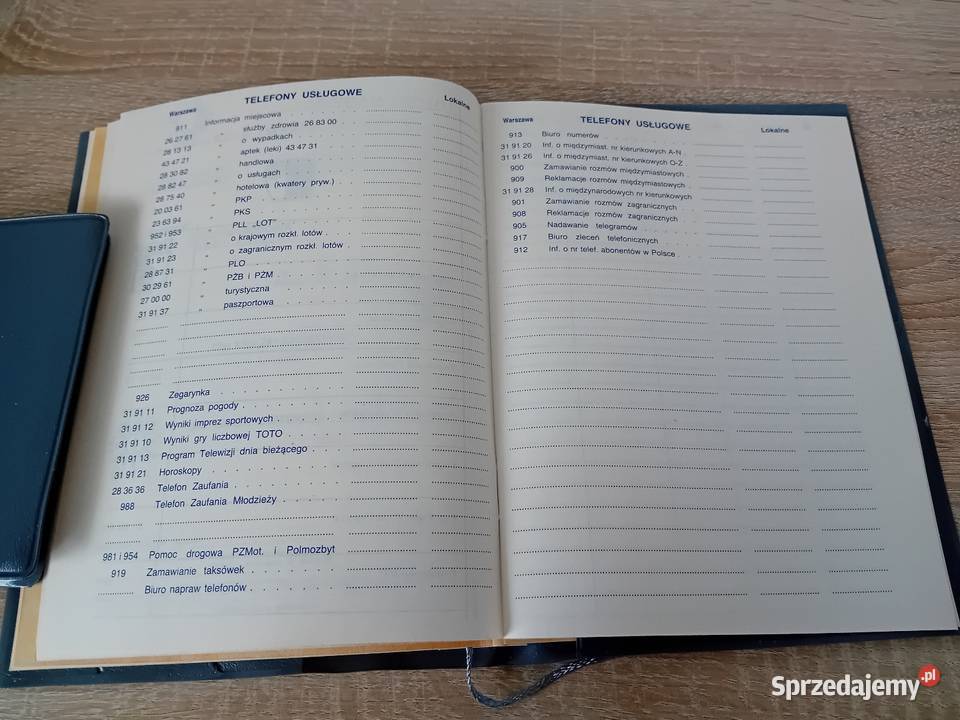 TELEFONY USŁUGOWE
Warszawa
Lokalne
911 Informacja miejscowa
26 27 61 " służby zdrowia 26 83 00
28 13 13 " o wypadkach
43 47 21 " aptek (leki) 43 47 31
28 30 82 " handlowa
28 82 47 " o usługach
28 75 40 " hotelowa (kwatery pryw.)
20 03 61 " PKP
23 63 94 " PKS
952 i 953 " PLL „LOT"
31 91 22 " o krajowym rozkł. lotów
31 91 23 " o zagranicznym rozkł. lotów
28 87 31 " PLO
30 29 61 " PŻB i PŻM
27 00 00 " turystyczna
31 91 37 " paszportowa
926 Zegarynka
31 91 11 Prognoza pogody
31 91 12 Wyniki imprez sportowych
31 91 10 Wyniki gry liczbowej TOTO
31 91 13 Program Telewizji dnia bieżącego
31 91 21 Horoskopy
28 36 36 Telefon Zaufania
988 Telefon Zaufania Młodzieży
981 i 954 Pomoc drogowa PZMot. i Polmozbyt
919 Zamawianie taksówek
Biuro napraw telefonów
Warszawa
TELEFONY USŁUGOWE
Lokalne
913 Biuro numerów
31 91 20 Inf. o międzymiast. nr kierunkowych A-N
31 91 26 Inf. o międzymiast. nr kierunkowych O-Z
900 Zamawianie rozmów międzymiastowych
909 Reklamacje rozmów międzymiastowych
31 91 28 Inf. o międzynarodowych nr kierunkowych
901 Zamawianie rozmów zagranicznych
908 Reklamacje rozmów zagranicznych
905 Nadawanie telegramów
917 Biuro zleceń telefonicznych
912 Inf. o nr telef. abonentów w Polsce
Sprzedajemy.pl